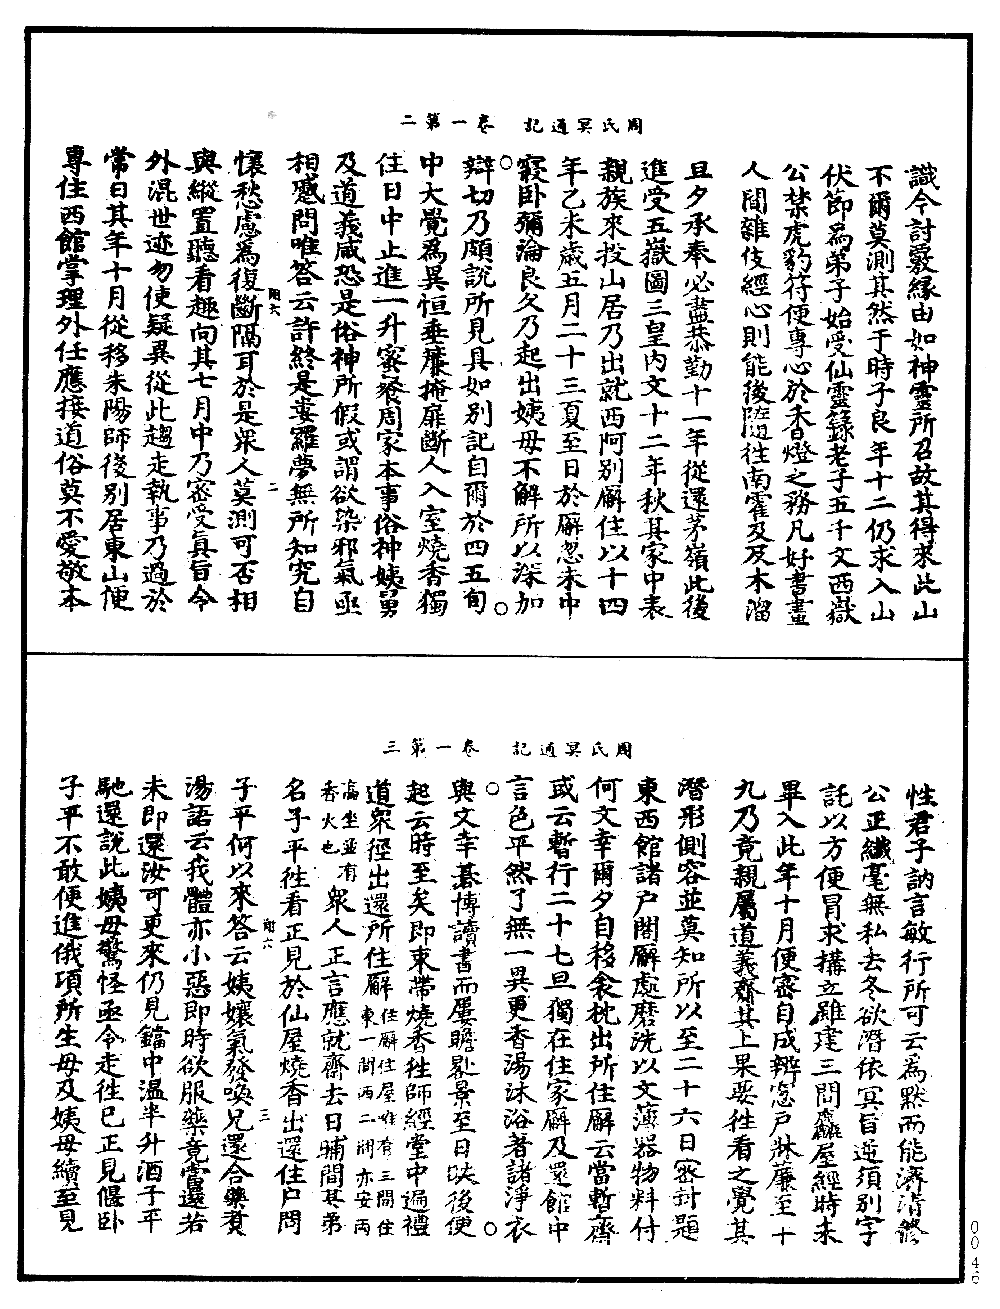 周氏冥通記　卷一第二
識今討覈緣由如神靈所召故其得求此山
不爾莫測其然于時子良年十二仍求入山
伏節為弟子始受仙靈籙老子五千文西嶽
公禁虎豹符便專心於香燈之務凡好書畫
人間雜伎經心則能後隨往南霍及反木溜
旦夕承奉必盡恭勤十一年從還茅嶺此後
進受五嶽圖三皇內文十二年秋其家中表
親族來投山居乃出就西阿別廨住以十四
年乙未歲五月二十三夏至日於廨忽未中
寢臥彌淪良久乃起出姨母不解所以深加
辯切乃頗說所見具如別記自爾於四五旬
中大覺為異恒垂簾掩扉斷人入室燒香獨
住日中止進一升蜜餐周家本事俗神姨舅
及道義咸恐是俗神所假或謂欲染邪氣亟
相感問唯答云許終是婁羅夢無所知究自
懷愁慮為復斷隔耳於是眾人莫測可否相
與縱置聽看趣向其七月中乃密受真旨令
外混世迹勿使疑異從此趨走執事乃過於
常日其年十月從移朱陽師後別居東山便
專住西館掌理外任應接道俗莫不愛敬本
周氏冥通記　卷一第三
性君子訥言敏行所可云為默而能濟清修
公正纖毫無私去冬欲潛依冥旨逆須別宇
託以方便冒求構立雖建三間麤屋經時未
畢入此年十月便密自成辦窓戶牀簾至十
九乃竟親屬道義齊其上果要往看之覺其
潛形側容並莫知所以至二十六日密封題
東西館諸戶閣廨處磨洗以文薄器物料付
何文幸爾夕自移衾枕出所住廨云當暫齋
或云暫行二十七旦獨在住家廨及還館中
言色平然了無一異更香湯沐浴著諸淨衣
與文幸碁博讀書而屢瞻晷景至日昳後便
起云時至矣即束帶燒香往師經堂中遍禮
道眾徑出還所住廨住廨住屋唯有三間住東一間西二間亦安兩
高坐並有香火也眾人正言應就齋去日晡間其弟
名子平往看正見於仙屋燒香出還住戶問
子平何以來答云姨孃氣發喚兄還合藥煮
湯語云我體亦小惡即時欲服藥竟當還若
未即還汝可更來仍見鐺中溫半升酒子平
馳還說此姨母驚怪亟令走往已正見偃臥
子平不敢便進俄頃所生母及姨母續至見
附六
二
附六
三
0046